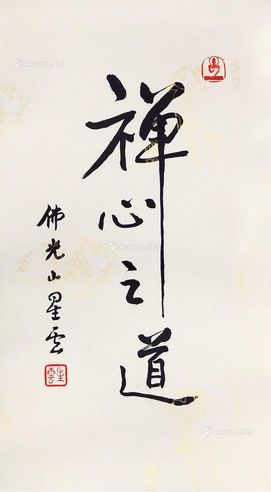 禅心之道
佛光山星雲
星雲
Artron.Net
Artron.Net
Artron.Net